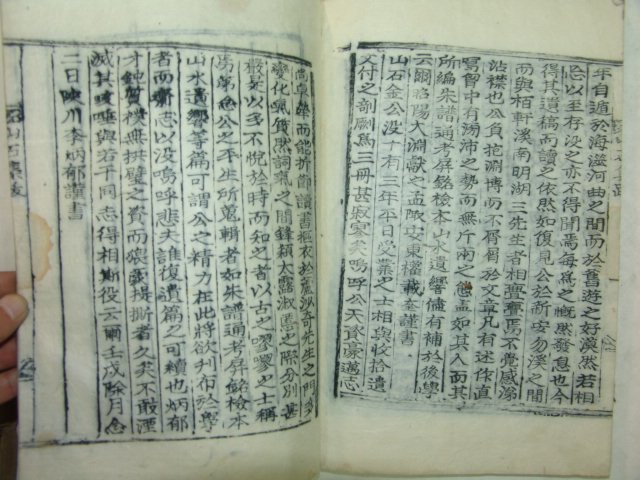 年自遁於海澨河曲之間而於舊遊之好漠然若相
忘以至存沒之亦不得聞焉每爲之慨然發息也今
得其遺稿而讀之依然如復見公於新安勿溪之間
而與柏軒溪南明湖三先生者相亹亹焉不覺感涕
沾襟也公負抱淵博而不屑屑於文章凡有述作直
寫胷中有湯沛之勢而無斤兩之態盖如其人而其
所編朱譜通考屛銘檢本山水遺響等儘有補於後學
云爾 陽 淵獻之孟陬安東權載奎謹書
山石金公沒十有三年平日受業之士相與收拾遺
文付之剞劂爲三冊甚寂寥矣嗚呼公天資豪邁志
尚卓犖而能折節讀書摳衣於蘆沙奇先生之門
變化氣質然詞氣之間鋒穎太露淑慝之際分別甚
嚴是以多不悅於時而知之者以古之嘐嘐之士稱
焉第念公之平生所蒐輯者如朱譜通考屛銘檢本
山水遺響等篇可謂公之精力在此將欲刊布於學
者而齎志以沒嗚呼悲夫誰復遺篇之可續也炳郁
才鈍質樸無拱璧之賚而猥 提撕者久矣不敢湮
滅其 唾與若干同志得相斯役云爾壬戌除月念
二日陜川李炳郁謹書